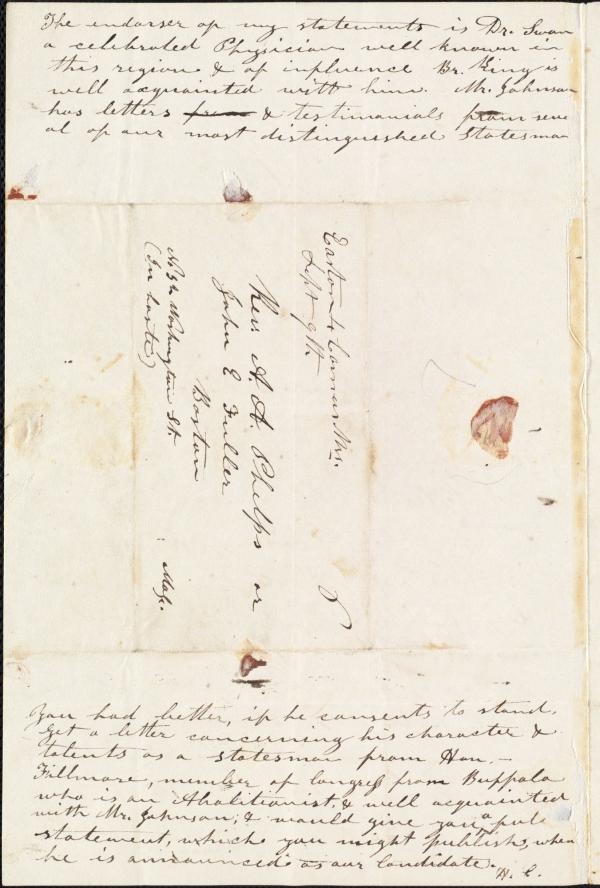 The endorser of my statements is Dr. Swan
a celebrated Physician well known in
this region & of influence Br. King is
well acquainted with him. Mr. Johnson
has letters from & testimonials from seve
al of our most distinguished Statesman
Easton 4 Corners
Sept 9th.
Rev A. A. Phelps or
John E Fuller
Boston
Mass.
No 54 Washington St.
(In haste)
You had better, if he consents to stand,
get a letter concerning his character &
talents as a statesman from Hon. –
Fillmore, member of Congress from Buffalo
who is an Abolitionist, & well acquainted
with Mr. Johnson; & would give you a full
statement, which you might publish, when
he is announced as our Candidate.
H. C.